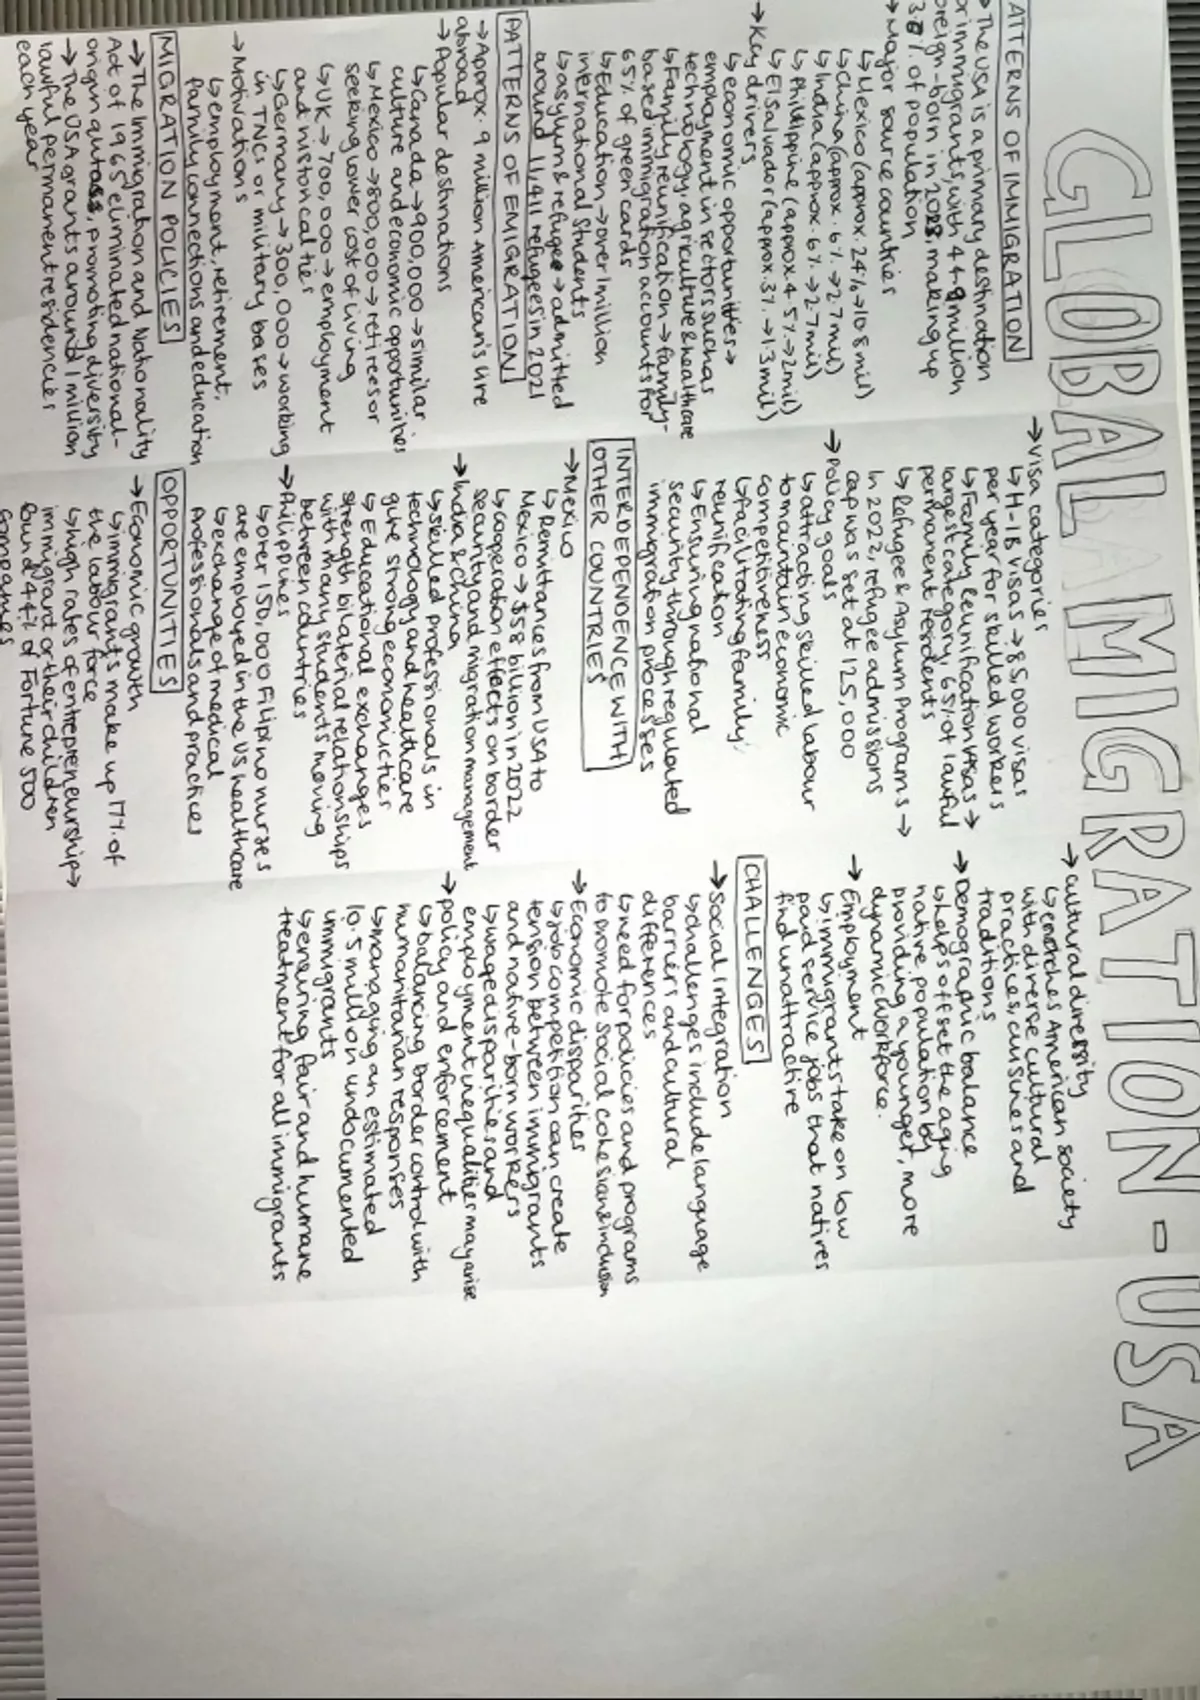 GLOBAL MIGRATION - USA
ATTERNS OF IMMIGRATION
→ The USA is a primary destination
or immigrants, with 44.9 million
oreign-born in 2023, making up
3.8% of population
→ Major source countries
↳ Mexico (approx. 24% → 10.8 mil)
↳ China (approx. 6% → 2.7 mil)
↳ India (approx. 6% → 2.7 mil)
↳ Phillippine (approx 4.5% → 2 mil)
↳ El Salvador (approx. 3% → 1.3 mil)
→ Key drivers
↳ economic opportunities →
employment in sectors such as
technology, agriculture & healthcare
↳ Family reunification → family-
based immigration accounts for
65% of green cards
↳ Education → over 1 million
international students
↳ asylum & refugee → admitted
around 11,411 refugees in 2021
PATTERNS OF EMIGRATION
→ Approx. 9 million American's live
abroad
→ Popular destinations
↳ Canada → 900,000 → similar
culture and economic opportunities
↳ Mexico → 800,000 → retirees or
seeking lower cost of living
↳ UK → 700,000 → employment
and historical ties
↳ Germany → 300,000 → working
in TNCs or military bases
→ Motivations
↳ employment, retirement,
family connections and education
MIGRATION POLICIES
→ The Immigration and Nationality
Act of 1965 eliminated national-
origin quotas, promoting diversity
→ The USA grants around 1 million
lawful permanent residencies
each year
→ Visa categories
↳ H-1B visas → 85,000 visas
per year for skilled workers
↳ Family Reunification visas →
largest category, 65% of lawful
permanent residents
↳ Refugee & Asylum Programs →
in 2022, refugee admissions
cap was set at 125,000
→ Policy goals
↳ attracting skilled labour
to mountain economic
competitiveness
↳ facilitating family
reunification
↳ Ensuring national
security through regulated
immigration processes
INTERDEPENDENCE WITH
OTHER COUNTRIES
→ Mexico
↳ Remittances from USA to
Mexico → $58 billion in 2022
↳ Cooperation effects on border
security and migration management
→ India & China
↳ skilled professionals in
technology and healthcare
give strong economic ties
↳ Educational exchanges
strength bilateral relationships
with many students moving
between countries
→ Philippines
↳ over 150,000 Filipino nurses
are employed in the US healthcare
↳ exchange of medical
professionals and practices
OPPORTUNITIES
→ Economic growth
↳ immigrants make up 17% of
the labour force
↳ high rates of entrepreneurship →
immigrant or their children
found 44% of Fortune 500
companies
→ cultural diversity
↳ enriches American society
with diverse cultural
practices, cuisines and
traditions
→ Demographic balance
↳ helps offset the aging
native population by
providing a younger, more
dynamic workforce.
→ Employment
↳ immigrants take on low
paid service jobs that natives
find unattractive
CHALLENGES
→ Social Integration
↳ challenges include language
barriers and cultural
differences
↳ need for policies and programs
to promote social cohesian & inclusion
→ Economic disparities
↳ job competition can create
tension between immigrants
and native-born workers
↳ wage disparities and
employment inequalities may arise
→ policy and enforcement
↳ balancing border control with
humanitarian responses
↳ managing an estimated
10.5 million undocumented
immigrants
↳ ensuring fair and humane
treatment for all immigrants